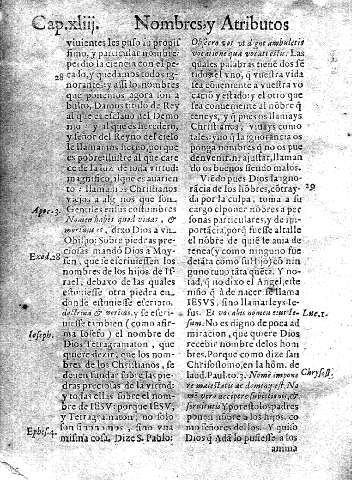 Cap.xliij. Nombres, y Atributos
uiuientes les puso su propis
simo, y particular nombre:
perdio la ciencia con el pe
28 cado, y quedamos todos ig
norantes: y assi los nombres
que ponemos agora son a
bulto. Damos titulo de Rey
al que es esclauo del Demo
nio y al que es heredero,
y señor del Reyno del cielo
llamamos sieruo, porque
es pobre: illustre al que care
ce de la luz de la fe virtud:
magnifico, al que es auarien
to: llamamos Christianos
a algunos que son
Apoc. 3. Gentiles en las costumbres
Nomen habes quod viuas, &
mortuus es, dixo Dios a vn
Obispo. Sobre piedras pre
ciosas mandò Dios a Moy-
Exod. 28 sen, que se escriuiessen los
nombres de los hijos de Is
rael, debaxo de las quales
estuuiesse otra piedra en
donde estuuiesse escrito,
doctrina & veritas, y se escri
uiesse tambien (como afir
Ioseph. ma Iosefo) el nombre de
Dios Tetragramaton, que
quiere dezir, que los nom-
bres de los Christianos, se
deuen fundar sobre las pie
dras preciosas de la virtud:
y todas ellas sobre el nom
bre de IESV: porque IESV,
y Tetragramaton, no solo
son sino vna
Ephes. 4. misma cosa. Dize S. Pablo:
Obsecro vos vt dignè ambuletis
vocatione qua vocati estis. Las
quales palabras tiene dos sē
tidos: el vno, q̃ vuestra vida
sea conueniente a vuestra vo
cacion y estado: y el otro que
sea conueniente al nōbre q̃
teneys, y q̃ pues os llamays
Christianos, viuays como
tales: y aū q̃ la ignorācia os
ponga nombres q̃ no os pue
den venir, ni ajustar, llaman
do os buenos siendo malos.
Viedo pues Dios la igno-
29 rācia de los hōbres, cōtray
da por la culpa, toma a su
cargo el poner nōbres a per
sonas particulares, y de im
portācia, porq̃ fuesse al talle
el nōbre de quiē le auia de
tener, y como ninguno fue
de tāta como su Hijo, cō nin
guno tuuo tāta quēta. Y no
tad, q̃ no dixo el Angel, este
niño q̃ à de nacer se llama
IESVS, sino llamarleys Ie-
sus. Et vocabis nomen eius Ie- Luc. 1.
sum. No es digno de poca ad
miracion, que quiere Dios
recebir nombre de los hom
bres. Porque como dize san
Chrisostomo, en la hom. de
laud. Pau. to. 3. Nomē impone
re maiestatis ac dominij est. No Chrysost.
mē verò accipere subiectionis, &
seruitutis: y por esto los padres
ponen nōbre a los hijos, co
mo señores dellos. Y quiso
Dios q̃ Adā lo pusiesse a los
anima